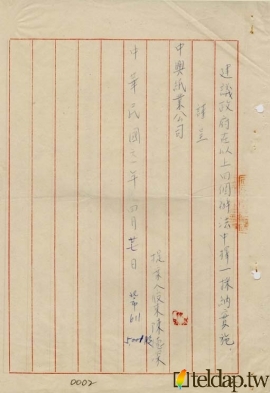 建議政府在以上四個辦法中擇一採納實施。
謹呈
中興紙業公司
提案人股東陳
中華民國
年四月廿日
500股
0002
teldap.tw